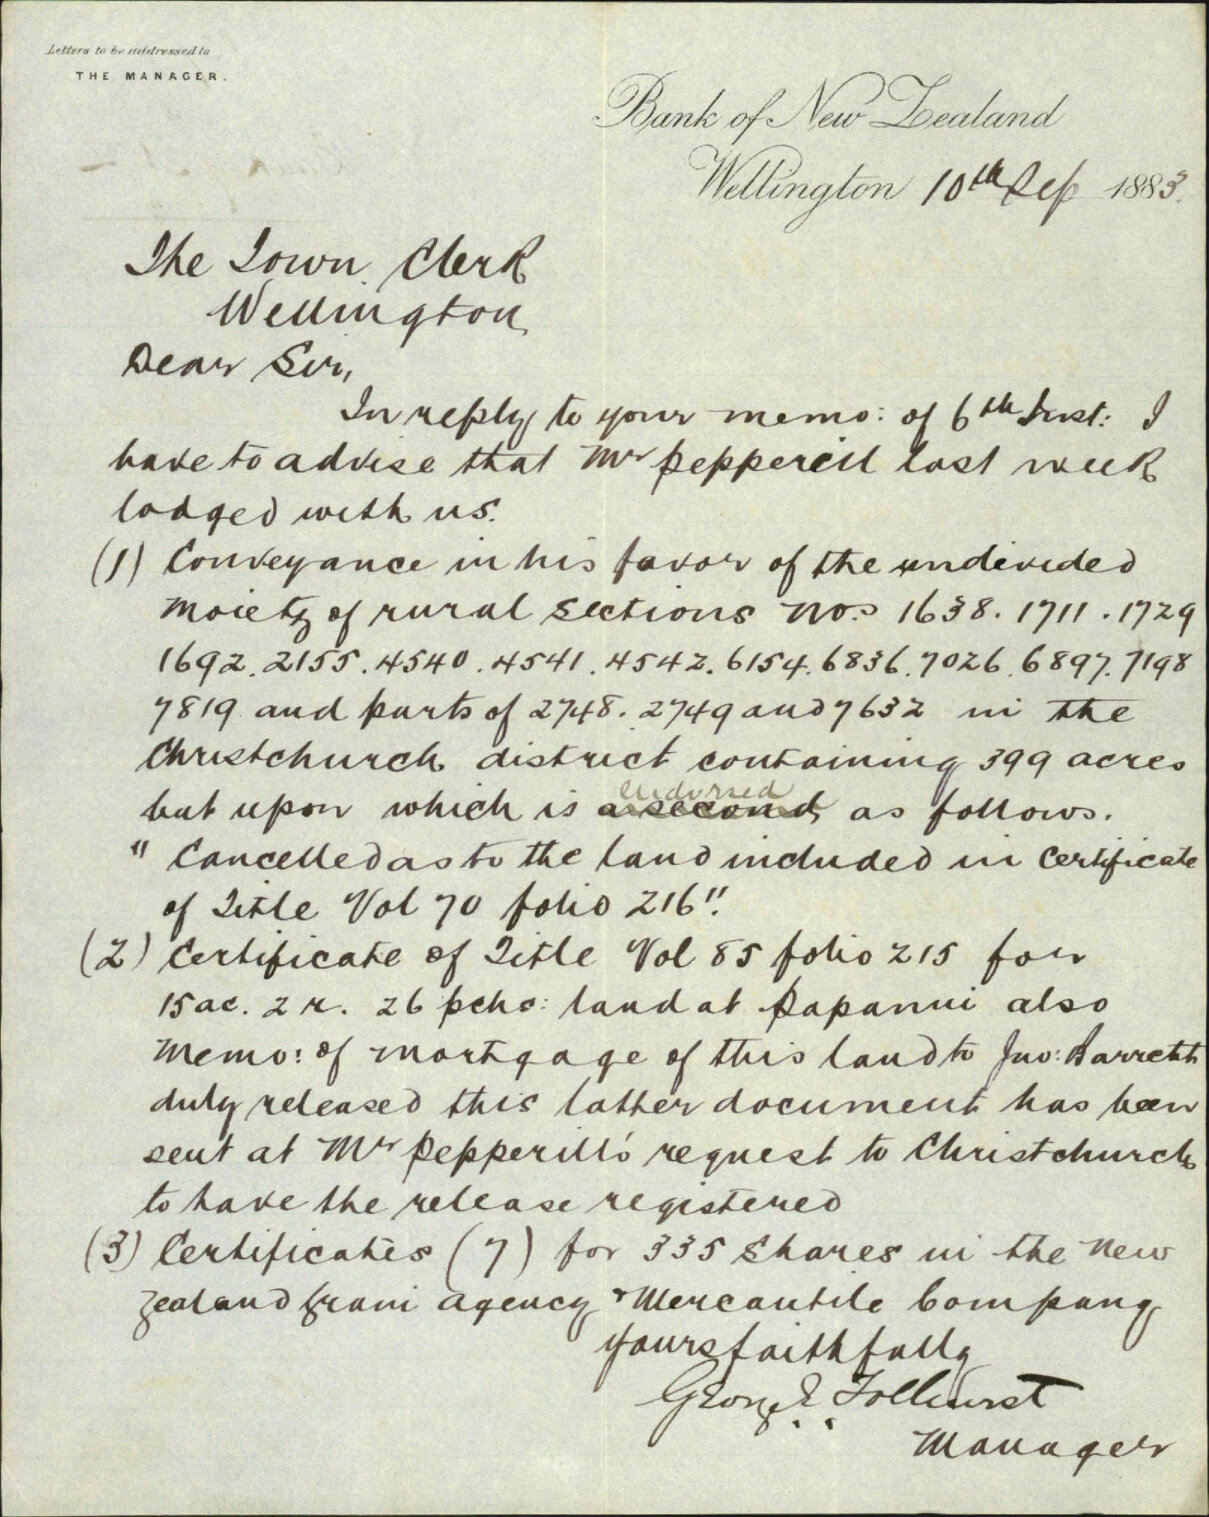 Letters to be addressed to
THE MANAGER.
Bank of New Zealand
Wellington 10th Sep 1883.
The Town Clerk
Wellington
Dear Sir,
In reply to your memo: of 6th Inst: I
have to advise that Mr Pepperill last week
lodged with us.
(1) Conveyance in his favor of the undivided
moiety of rural sections Nos 1638. 1711. 1729
1692. 2155. 4540. 4541. 4542. 6154. 6836. 7026. 6897. 7198
7819 and parts of 2748. 2749 and 7632 in the
Christchurch district containing 399 acres
endorsed
but upon which is a second, as follows.
"Cancelled as to the land included in Certificate
of Title Vol 70 folio 216".
(2) Certificate of Title Vol 85 folio 215 for
15 ac. 2 r. 26 pchs: land at Papanui also
Memo: of mortgage of this land to Jno: Barrett
duly released this latter document has been
sent at Mr Pepperill's request to Christchurch
to have the release registered
(3) Certificates (7) for 335 shares in the New
Zealand Grain Agency & Mercantile Company
Yours faithfully
George E Tolhurst
Manager